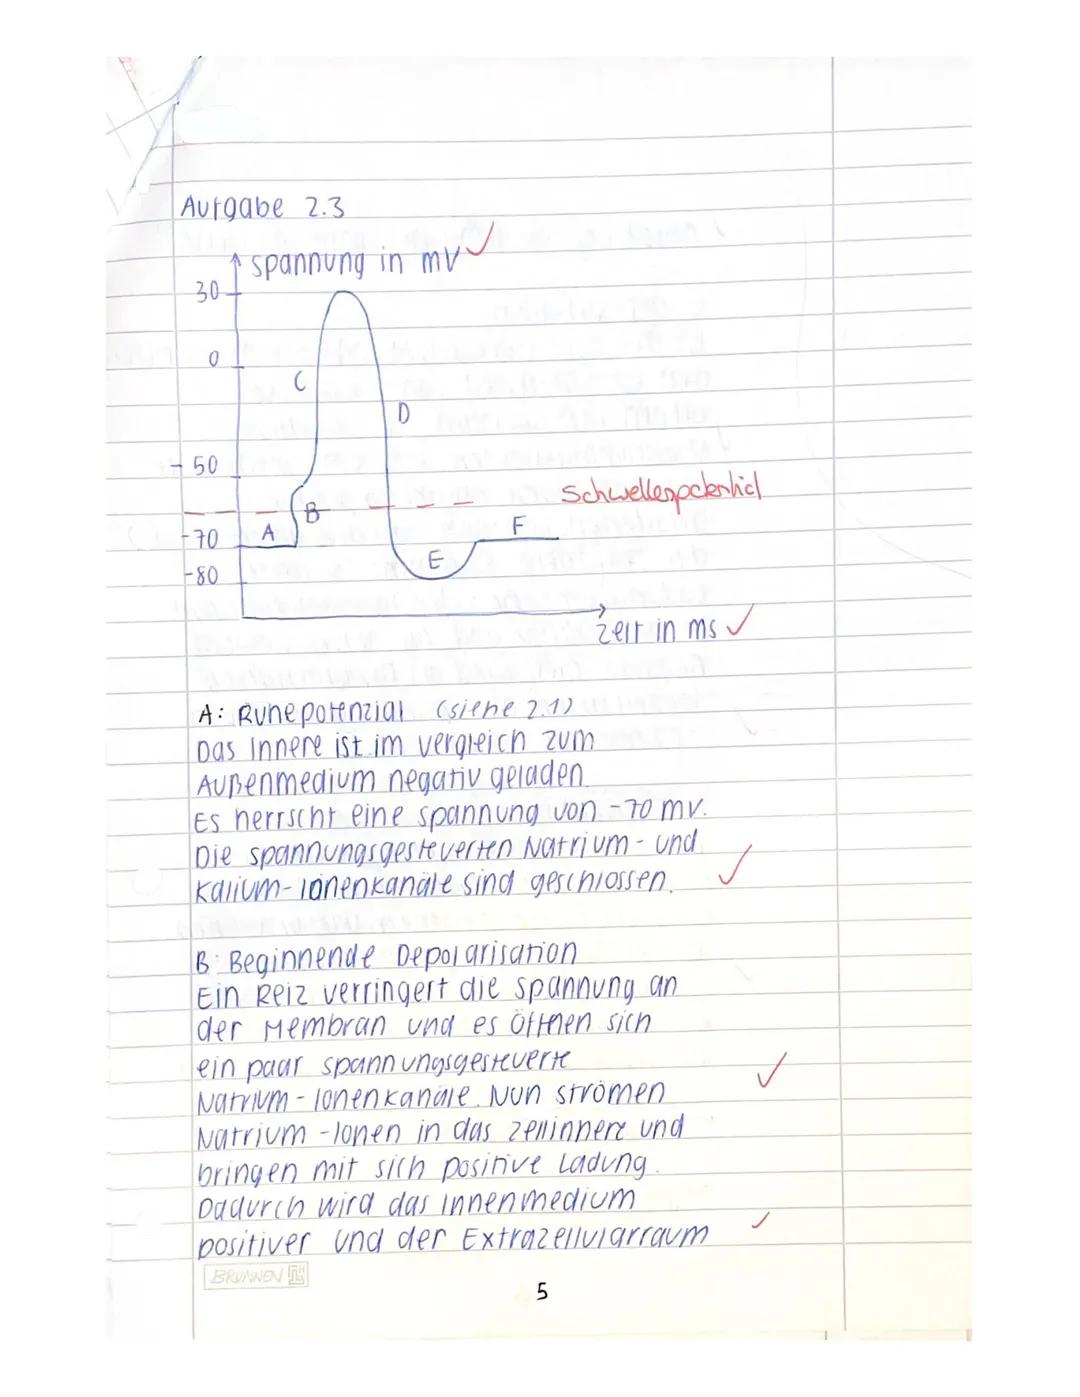 Aufgabe 2.3
Spannung in mV
30
0
C
D
-50
Schwellenpotential
B
A
F
-70
E
-80
Zeit in ms
A: Ruhepotenzial (siehe 2.1)
Das Innere ist im Vergleich zum
Außenmedium negativ geladen.
Es herrscht eine Spannung von -70 mV.
Die spannungsgesteuerten Natrium- und
Kalium-Ionenkanäle sind geschlossen.
B: Beginnende Depolarisation
Ein Reiz verringert die Spannung an
der Membran und es öffnen sich
ein paar spannungsgesteuerte
Natrium-Ionenkanäle. Nun strömen
Natrium-Ionen in das Zellinnere und
bringen mit sich positive Ladung.
Dadurch wird das Innenmedium
positiver und der Extrazellulärraum
BRUNNEN
5